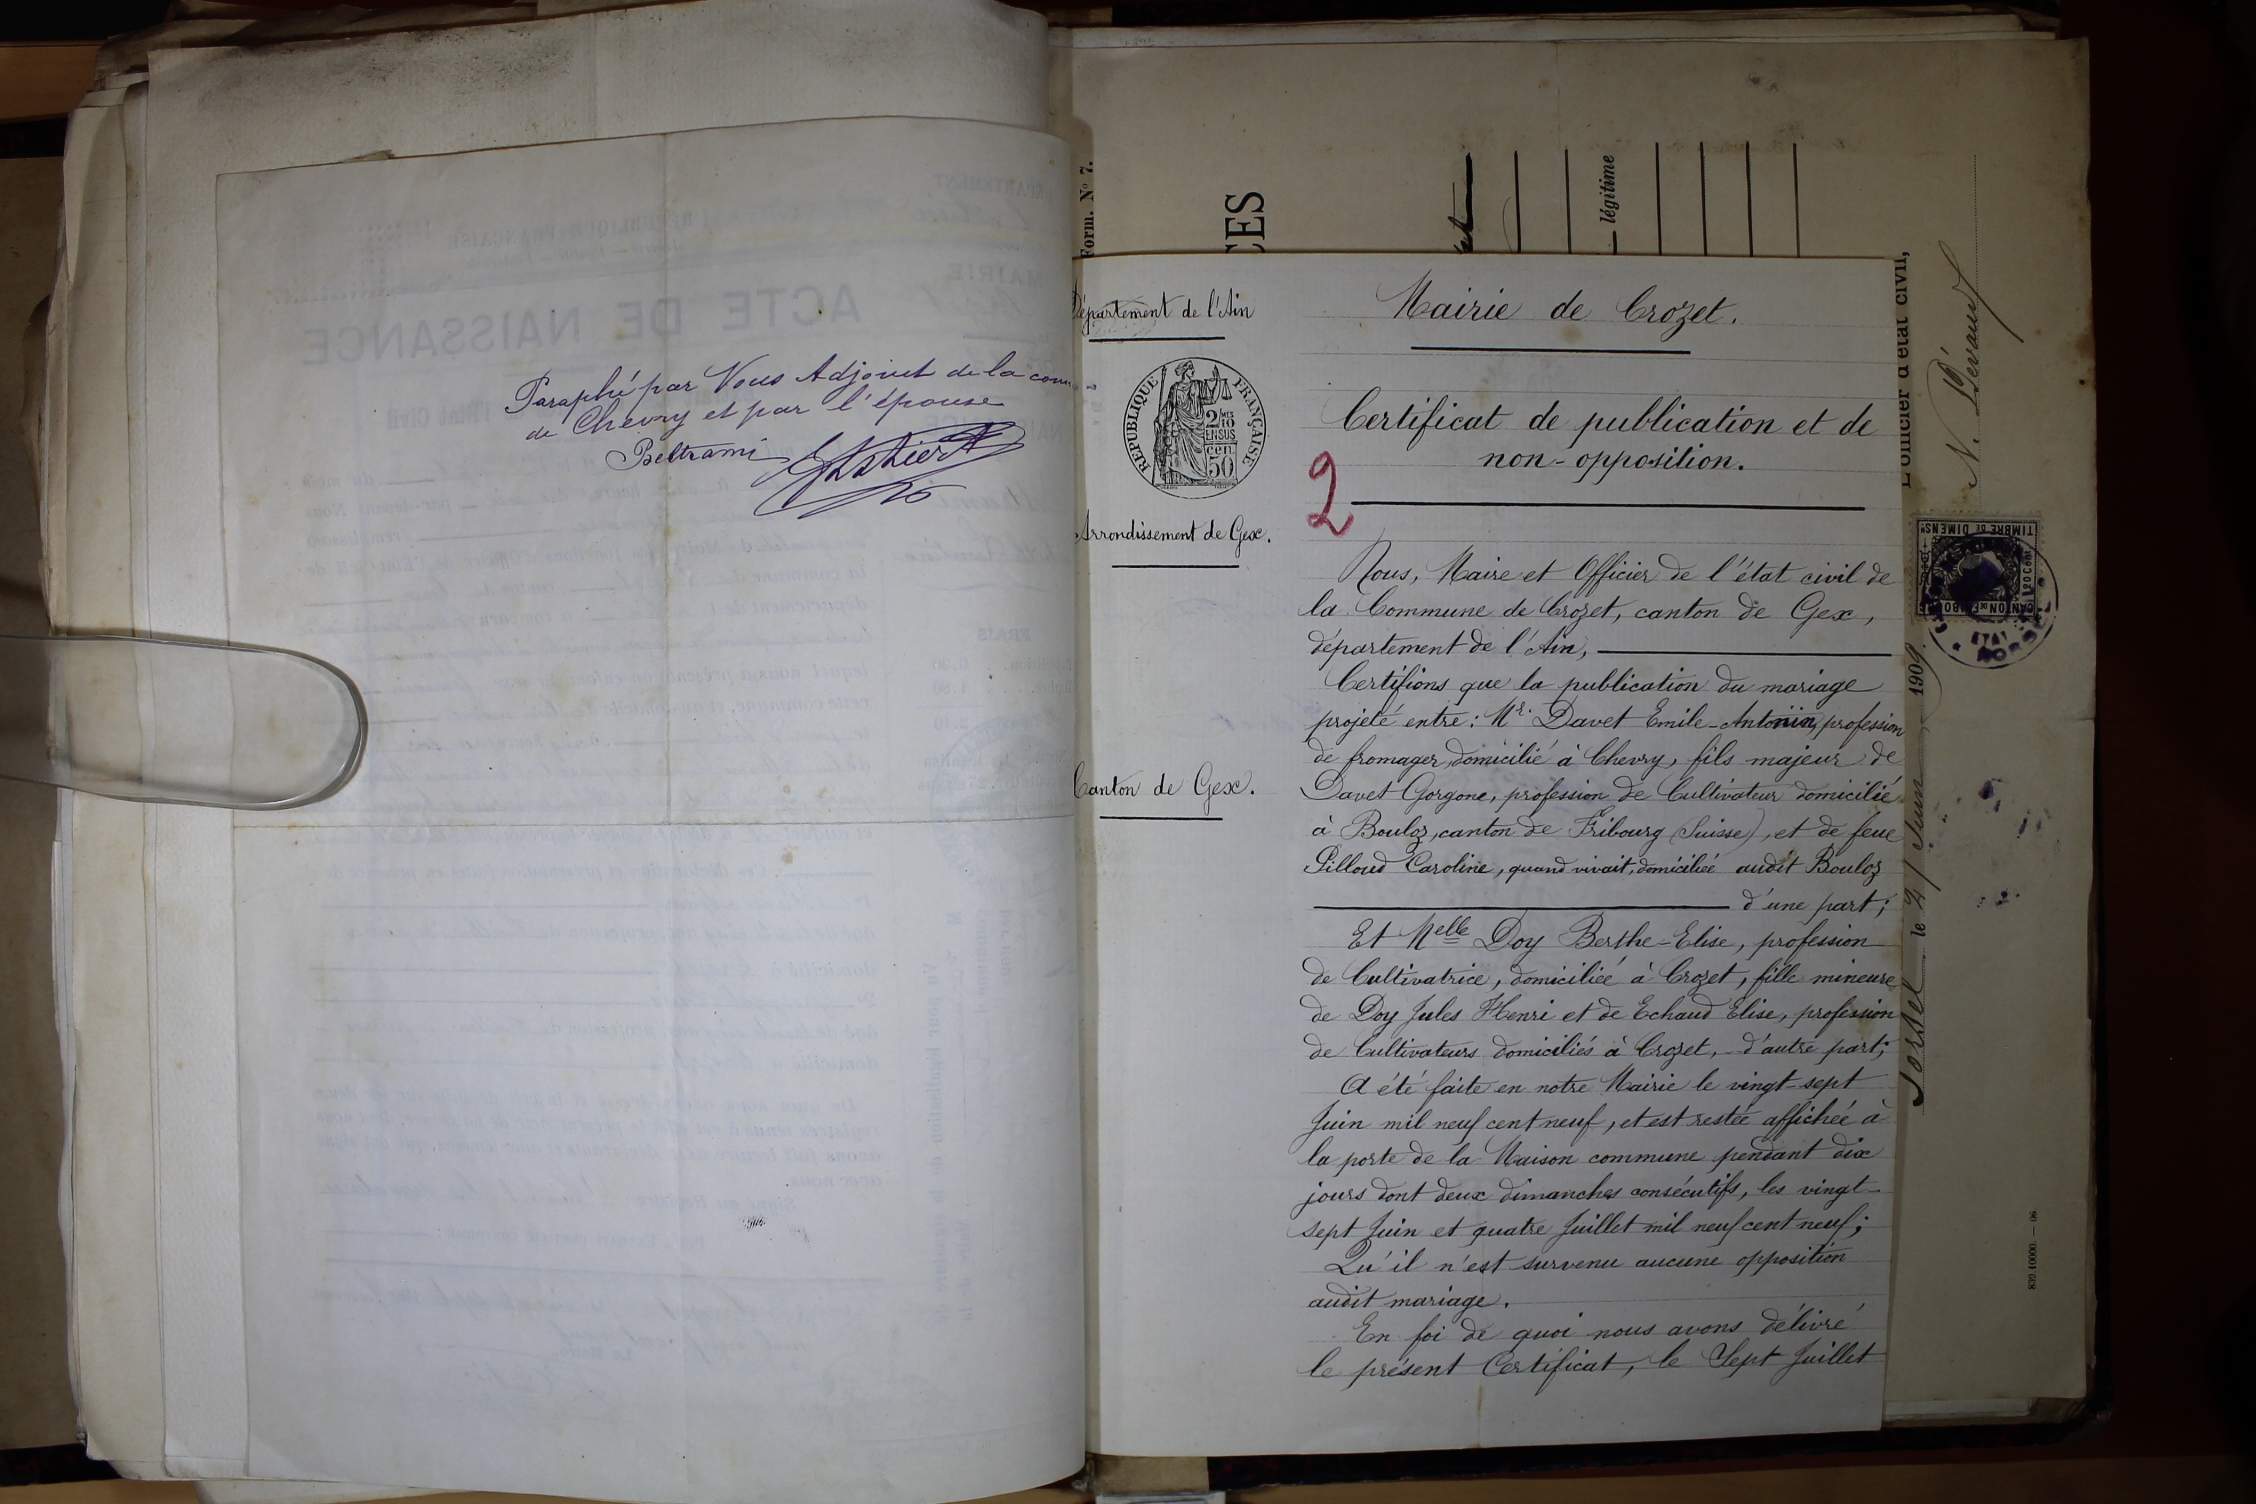 Paraphé par Nous Adjoint de la com
de Chevry et par l'épouse
Beltrami
ACTE DE NAISSANCE
Form. No 7.
CES
légitime
L'officier d'état civil,
Sorsel le 21 Juin 1909.
TIMBRE DE DIMENSN
839.10000. — 08
Département de l'Ain
RÉPUBLIQUE FRANÇAISE
2/10 MES
EN SUS
50 cen
Arrondissement de Gex.
Canton de Gex.
Mairie de Crozet.
Certificat de publication et de
non-opposition.
2
Nous, Maire et Officier de l'état civil de
la Commune de Crozet, canton de Gex,
département de l'Ain,
Certifions que la publication du mariage
projeté entre : Mr. Davet Emile-Antonin, profession
de fromager, domicilié à Chevry, fils majeur de
Davet Gorgone, profession de Cultivateur domicilié
à Bouloz, canton de Fribourg (Suisse), et de feue
Pilloud Caroline, quand vivait, domiciliée audit Bouloz
d'une part ;
Et Melle Doy Berthe-Elise, profession
de Cultivatrice, domiciliée à Crozet, fille mineure
de Doy Jules Henri et de Echaud Elise, profession
de Cultivateurs domiciliés à Crozet, d'autre part ;
A été faite en notre Mairie le vingt-sept
Juin mil neuf cent neuf, et est restée affichée à
la porte de la Maison commune pendant dix
jours dont deux dimanches consécutifs, les vingt-
sept Juin et quatre Juillet mil neuf cent neuf ;
Qu'il n'est survenu aucune opposition
audit mariage.
En foi de quoi nous avons délivré
le présent Certificat, le Sept Juillet